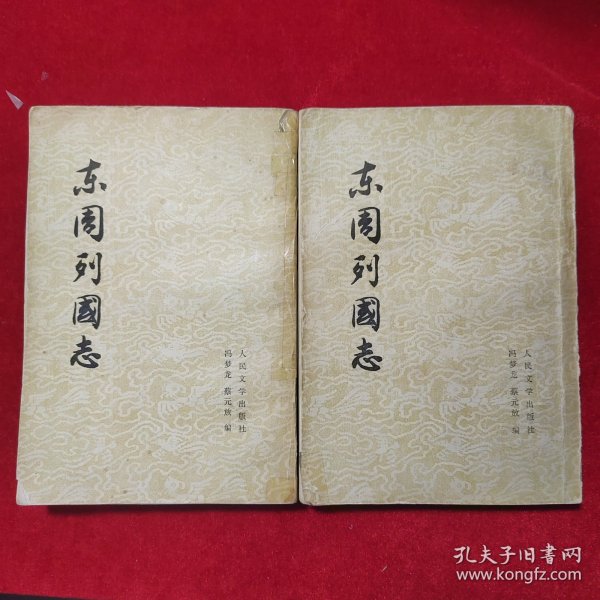 东周列國志
人民文学出版社
冯梦龙 蔡元放 编
东周列國志
人民文学出版社
冯梦龙 蔡元放 编
孔夫子旧书网
www.kongfz.com